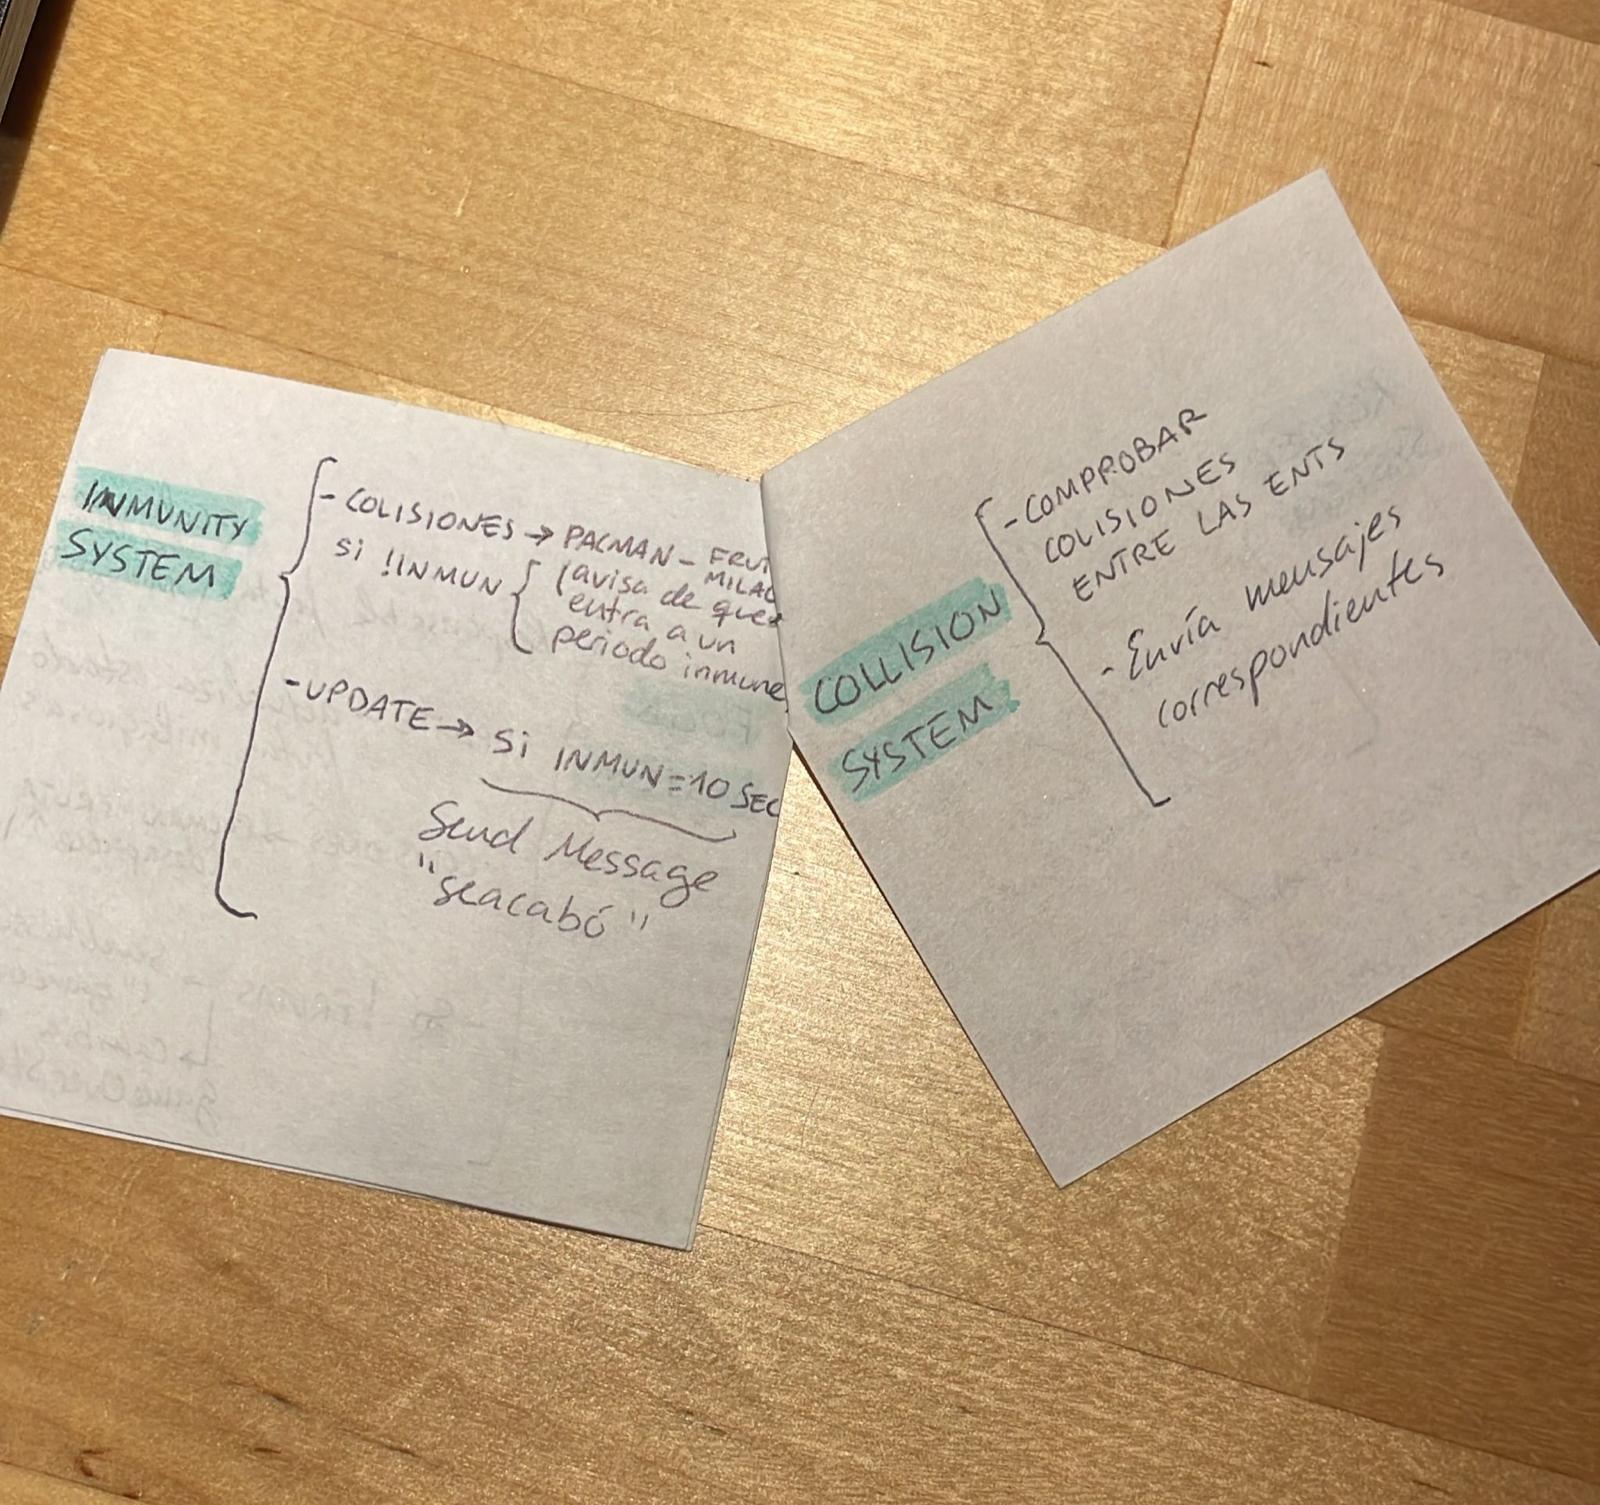 INMUNITY
SYSTEM
- COLISIONES → PACMAN - FRUT
MILAG
si !INMUN { (avisa de que
entra a un
periodo inmune
- UPDATE → si INMUN = 10 SEC
Send Message
"seacabó"
COLLISION
SYSTEM
- COMPROBAR
COLISIONES
ENTRE LAS ENTS
- Envía mensajes
correspondientes